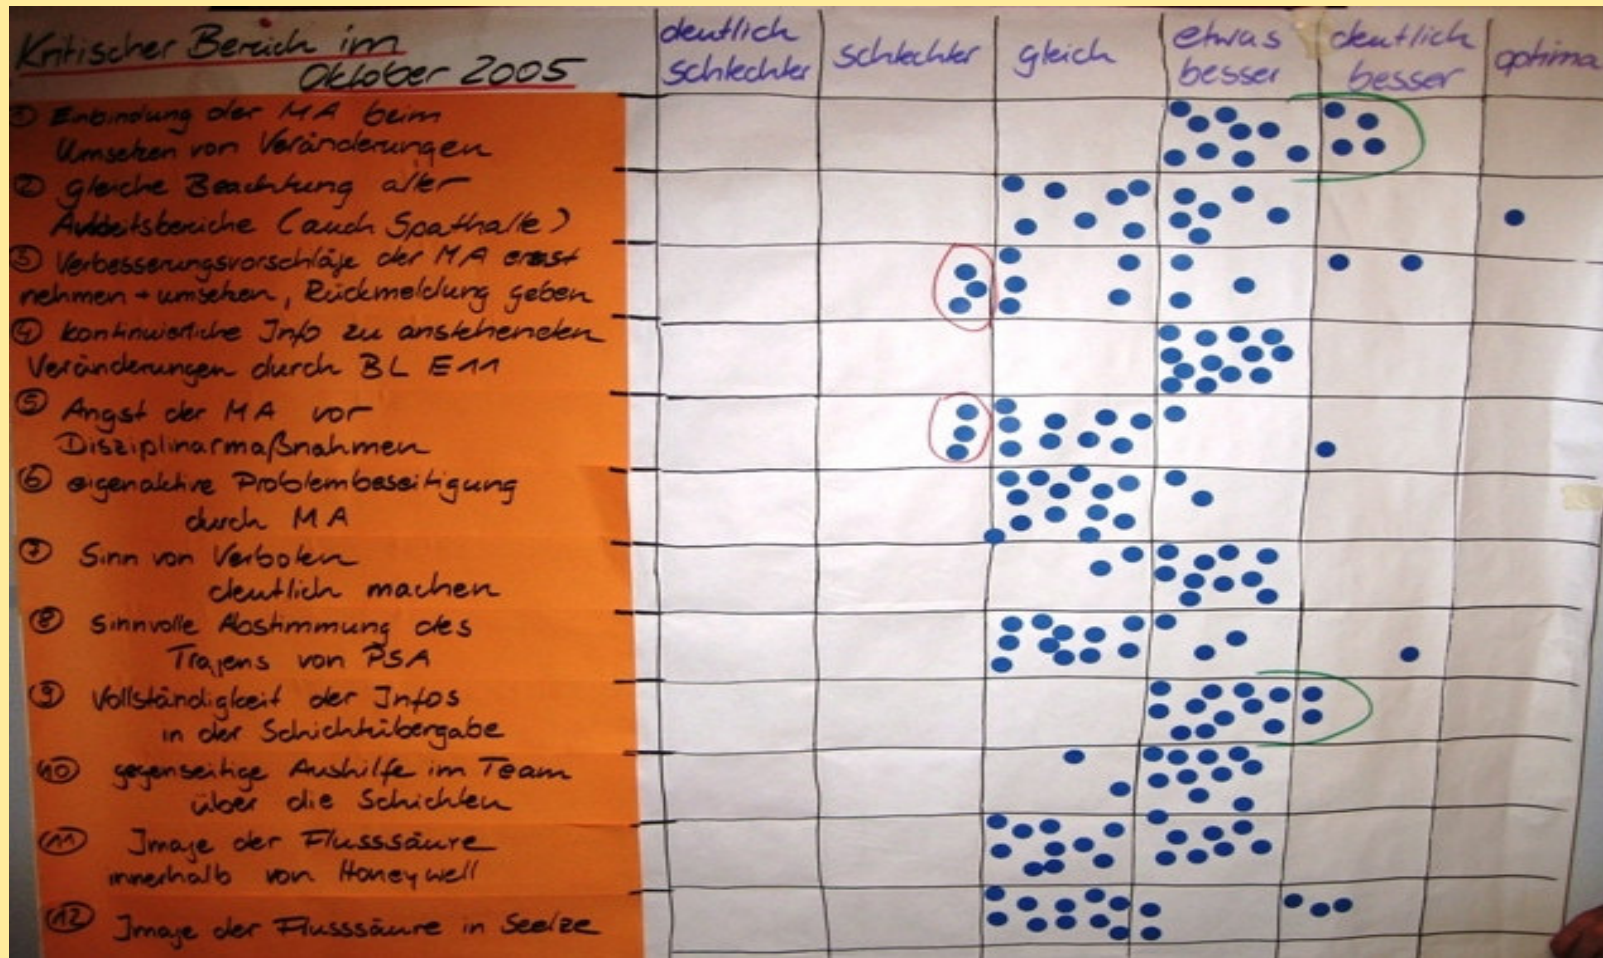 Kritischer Bereich im
Oktober 2005
deutlich
schlechter
schlechter
gleich
etwas
besser
deutlich
besser
optima
① Einbindung der MA beim
Umsetzen von Veränderungen
② gleiche Beachtung aller
Arbeitsbereiche (auch Spathalle)
③ Verbesserungsvorschläge der MA ernst
nehmen + umsetzen, Rückmeldung geben
④ kontinuierliche Info zu anstehenden
Veränderungen durch BL E11
⑤ Angst der MA vor
Disziplinarmaßnahmen
⑥ eigenaktive Problembeseitigung
durch MA
⑦ Sinn von Verboten
deutlich machen
⑧ sinnvolle Abstimmung des
Tragens von PSA
⑨ Vollständigkeit der Infos
in der Schichtübergabe
⑩ gegenseitige Aushilfe im Team
über die Schichten
⑪ Image der Flusssäure
innerhalb von Honeywell
⑫ Image der Flusssäure in Seelze